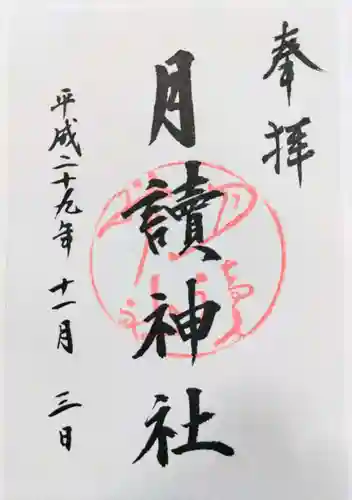 奉拝
月讀神社
平成二十九年十一月三日